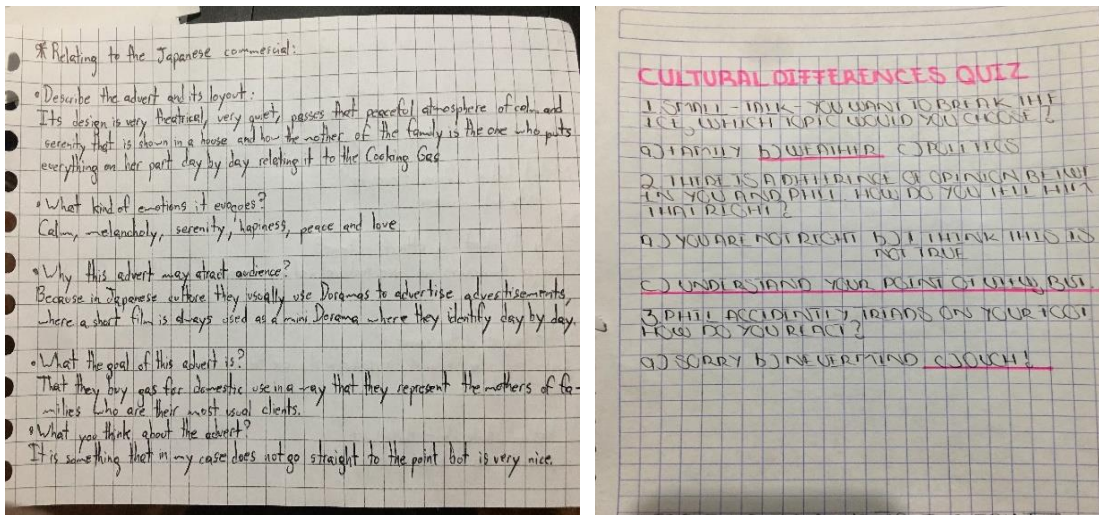 * Relating to the Japanese commercial:
• Describe the advert and its loyout:
Its design is very theatrical, very quiet, passes that peaceful atmosphere of calm and
serenity that is shown in a house and how the mother of the family is the one who puts
everything on her part day by day relating it to the Cooking Gas
• What kind of emotions it evocoes?
Calm, melancholy, serenity, hapiness, peace and love
• Why this advert may atract audience?
Because in Japanese culture they usually use Doramas to advertise advestisements,
where a short film is always used as a mini Dorama where they identify day by day.
• What the goal of this advert is?
That they buy gas for domestic use in a way that they represent the mothers of fa-
milies who are their most usual clients.
• What you think about the advert?
It is something that in my case does not go straight to the point but is very nice.
CULTURAL DIFFERENCES QUIZ
1. SMALL-TALK- YOU WANT TO BREAK THE
ICE, WHICH TOPIC WOULD YOU CHOOSE?
a) FAMILY b) WEATHER c) POLITICS
2. THERE IS A DIFFERENCE OF OPINION BETWE
EN YOU AND PHIL. HOW DO YOU TELL HIM
THAT RIGHT?
a) YOU ARE NOT RIGHT b) I THINK THIS IS
NOT TRUE
c) UNDERSTAND YOUR POINT OF VIEW, BUT
3. PHIL ACCIDENTLY TREADS ON YOUR FOOT
HOW DO YOU REACT?
a) SORRY b) NEVERMIND c) OUCH!